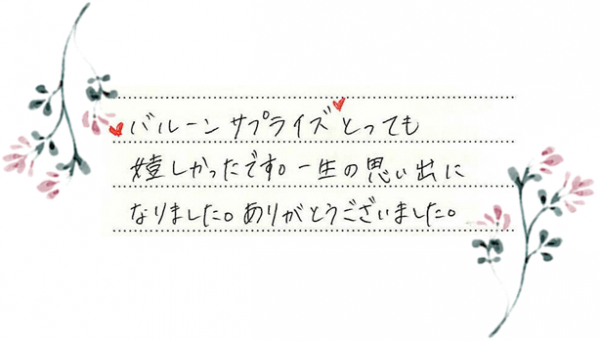 バルーンサプライズとっても
嬉しかったです。一生の思い出に
なりました。ありがとうございました。